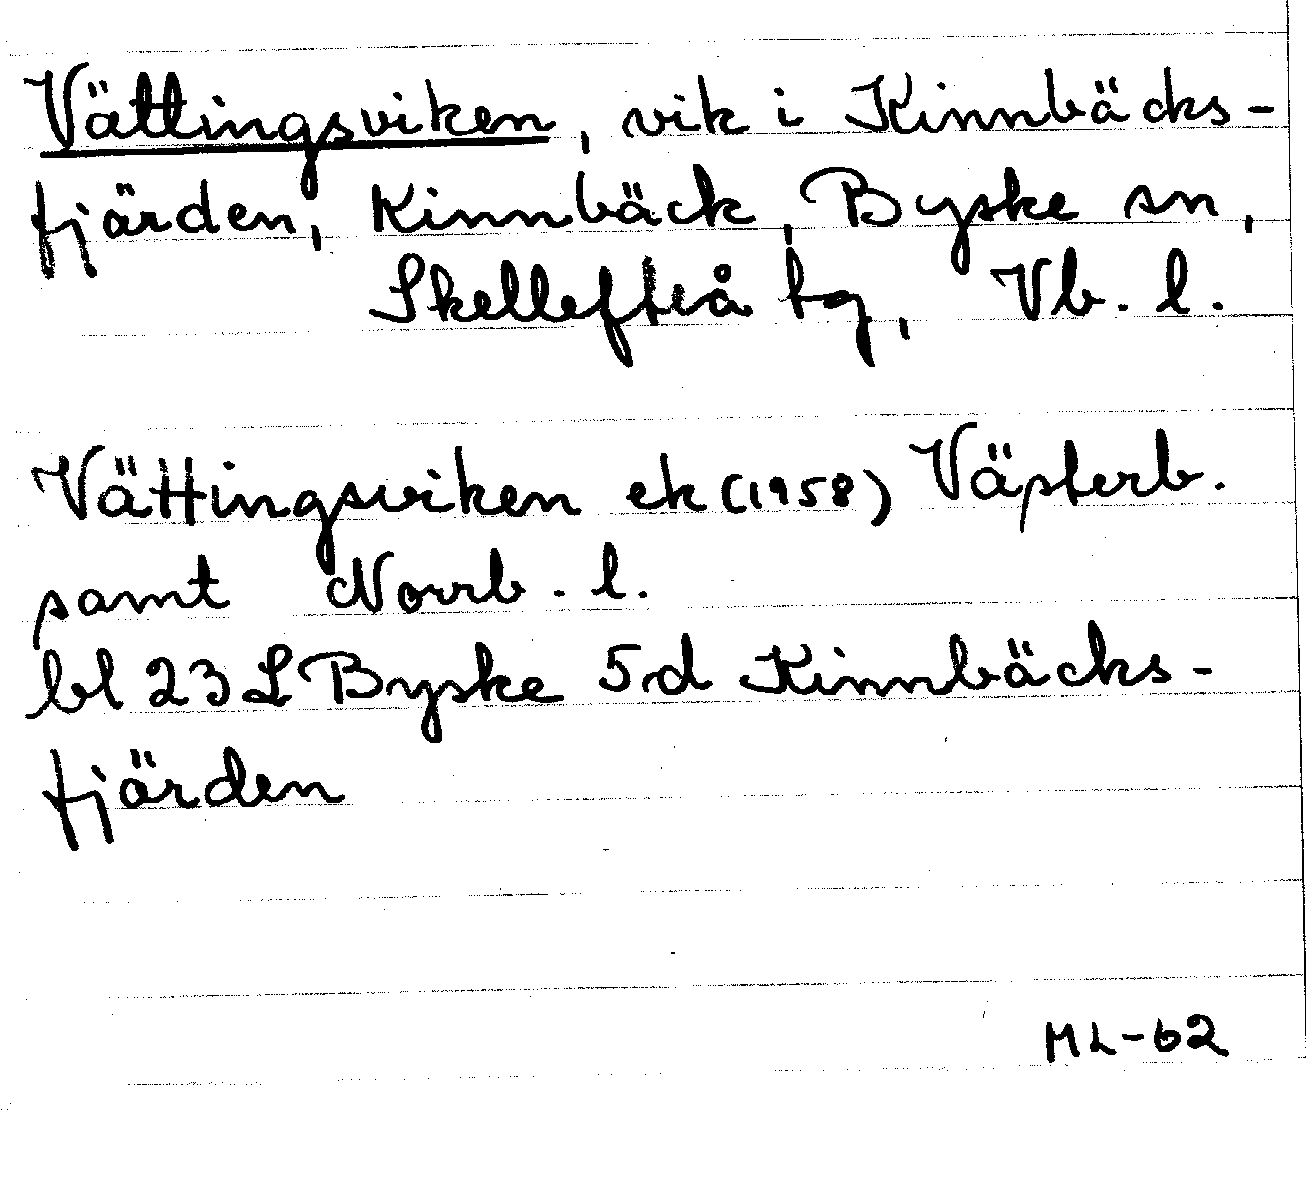 Vättingsviken, vik i Kinnbäcks-
fjärden, Kinnbäck, Byske sn,
Skellefteå tg, Vb. l.
Vättingsviken ek (1958) Västerb.
samt Norrb. l.
bl 23 L Byske 5d Kinnbäcks-
fjärden
ML-62